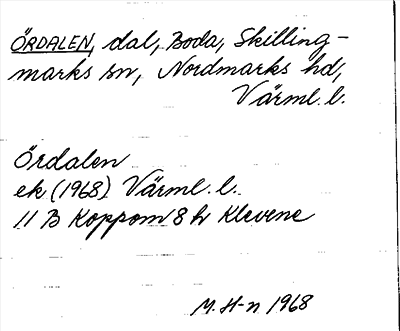 ÖRDALEN, dal, Boda, Skilling-
marks sn, Nordmarks hd,
Värml. l.
Ördalen
ek (1968) Värml. l.
11 B Koppom 8 h Klevene
M. H-n 1968